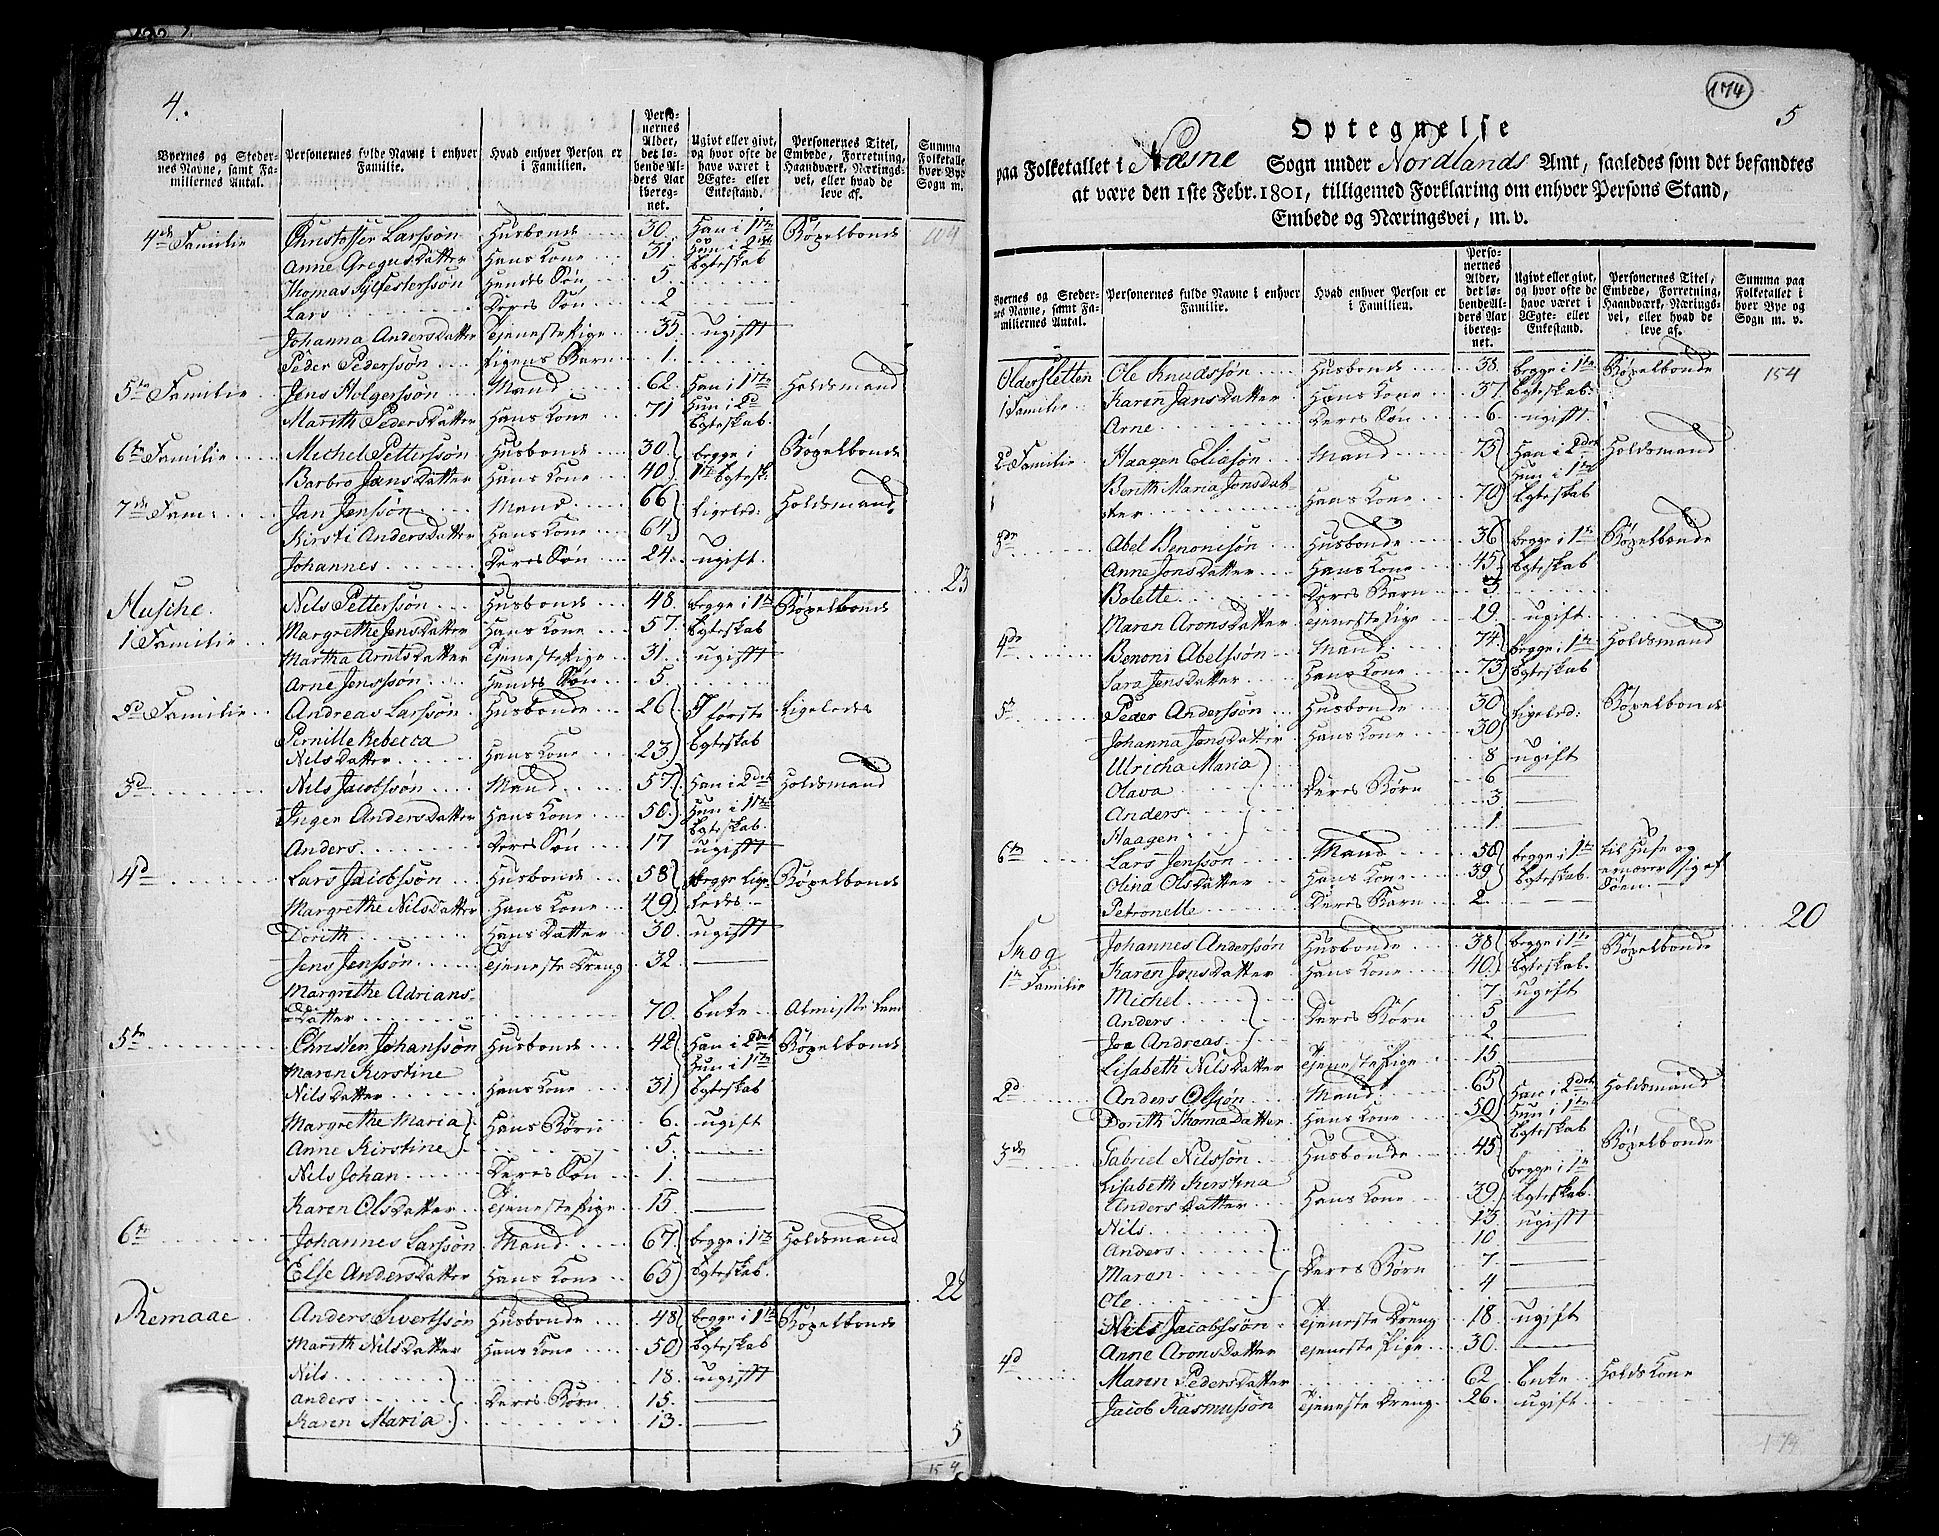 4.
Byernes og Steder-
nes Navne, samt Fa-
miliernes Antal.
Personernes fulde Navne i enhver
Familie.
Hvad enhver Person er
i Familien.
Perso-
nernes
Alder,
det lø-
bende Al-
ders Aar
ibereg-
net.
Ugivt eller givt,
og hvor ofte de
have været i
Ægte- eller
Enkestand.
Personernes Titel,
Embede, Forretning,
Haandværk, Nærings-
vei, eller hvad de
leve af.
Summa
Folketallet
hver Bye
Sogn m.
4de Familie Christoffer Larssøn Husbonde 30. Han i 1ste Bøxelbonde 104
Anne GregusDatter Hans Kone 31. Hun i 2det
Thomas Sylfesterssøn Hendes Søn 5. Egteskab
Lars Deres Søn 2
Johanna AndersDatter Tjeneste Pige 35. ugift
Peder Pederssøn Pigens Barn 1.
5te Familie Jens Holgerssøn Mand 62. Han i 1ste Holdsmand
Marith PedersDatter Hans Kone 71 Hun i 2d Egteskab.
6te Familie Michel Petterssøn Husbonde 30. begge i Bøxelbonde
Barbro JansDatter Hans Kone 40. 1te Egtesk:
7de Fam: Jan Jenssøn Mand 66 Ligeled: Holdsmand
Kirsti AndersDatter Hans Kone 64.
Johannes Deres Søn 24. ugift. 23
Husche.
1 Familie Nils Petterssøn Husbonde 48. begge i 1te Bøxelbonde
Margrethe JensDatter Hans Kone 57. Egteskab
Martha ArntsDatter Tjeneste Pige 31. ugift
Arne Jenssøn Hendes Søn 5.
2d Familie Andreas Larssøn Husbonde 26 I første Ligeledes
Pernille Rebecca
NilsDatter Hans Kone 23 Egteskab
3d Nils Jacobssøn Mand 57 Han i 2det Holdsmand
Inger AndersDatter Hans Kone 50. Hun i 1ste
Anders Deres Søn 17 Egteskab. ugift
4d Lars Jacobssøn Husbonde 58 begge Lige- Bøxelbonde
Margrethe NilsDatter Hans Kone 49 ledes
Dorith Hans Datter 30. ugift
Jens Jenssøn Tjeneste Dreng 32.
Margrethe Adrians-
Datter 70. Enke Almisse Lem
5te Christen Johanssøn Husbonde 42 Han i 2det Bøxelbonde
Maren Kirstine Hun i 1ste
NilsDatter Hans Kone 31 Egteskab
Margrethe Maria Hans Børn 6. ugift
Anne Kirstine 5.
Nils Johan Deres Søn 1.
Karen OlsDatter Tjeneste Pige 15
6te Johannes Larssøn Mand 67. begge i 1te Holdsmand
Else AndersDatter Hans Kone 65 Egteskab. 22
Remaae Anders Sivertssøn Husbonde 48 begge i 1te Bøxelbonde
Marith NilsDatter Hans Kone 50 Egteskab
Nils 18. ugift
Anders Deres Børn 15.
Karen Maria 13. 5
154
174
5
Optegnelse
paa Folketallet i Næsne Sogn under Nordlands Amt, saaledes som det befandtes
at være den 1ste Febr. 1801, tilligemed Forklaring om enhver Persons Stand,
Embede og Næringsvei, m. v.
Byernes og Steder-
nes Navne, samt Fa-
miliernes Antal.
Personernes fulde Navne i enhver
Familie.
Hvad enhver Person er
i Familien.
Perso-
nernes
Alder,
det lø-
bende Al-
ders Aar
ibereg-
net.
Ugivt eller givt,
og hvor ofte de
have været i
Ægte- eller
Enkestand.
Personernes Titel,
Embede, Forretning,
Haandværk, Nærings-
vei, eller hvad de
leve af.
Summa paa
Folketallet i
hver Bye og
Sogn m. v.
Oldersletten Ole Knudssøn Husbonde 38. begge i 1te Bøxelbonde 154
1 Familie Karen JansDatter Hans Kone 37. Egteskab.
Arne Deres Søn 6. ugift
2d Familie Haagen Eliasøn Mand 73 Han i 2det Holdsmand
Berith Maria Jonsdat- Hun i 1ste
ter Hans Kone 70 Egteskab
3de Abel Benonisøn Husbonde 36 begge i 1te Bøxelbonde
Anne JonsDatter Hans Kone 45 Egteskab
Bolette Deres Barn 3.
Maren AronsDatter Tjeneste Pige 19. ugift
4de Benoni Abelssøn Mand 74. begge i 1te Holdsmand
Sara JensDatter Hans Kone 73 Egteskab
5t Peder Anderssøn Husbonde 30 Ligeled: Bøxelbonde
Johanna JonsDatter Hans Kone 30
Ulricha Maria 8 ugift
Olava Deres Børn 6
Anders 3.
Haagen 1.
6te Lars Jenssøn Mand 50 begge i 1te til Huse og
Olina OlsDatter Hans Kone 39 Egteskab. ernærer sig af
Petronelle Deres Barn 2. Søen. 20
Skog Johannes Anderssøn Husbonde 38 begge i 1te Bøxelbonde
1te Familie Karen JonsDatter Hans Kone 40. Egteskab.
Michel 7 ugift
Anders Deres Børn 5
Joe Andreas 2
Lisabeth NilsDatter Tjeneste Pige 15.
2d Anders Olssøn Mand 65 Han i 2det Holdsmand
Dorith ThomæDatter Hans Kone 50 Hun i 1te Egteskab
3de Gabriel Nilssøn Husbonde 45 begge i 1te Bøxelbonde
Lisabeth Kirstina
AndersDatter Hans Kone 39. Egteskab.
Nils 13 ugift
Anders Deres Børn 10
Maren 7
Ole 4
Nils Jacobssøn Tjeneste Dreng 18 ugift
Anne AronsDatter Tjeneste Pige 30.
4d Maren PedersDatter 62 Enke Holds Kone
Jacob Rasmussøn Tjeneste Dreng 26. ugift.
174